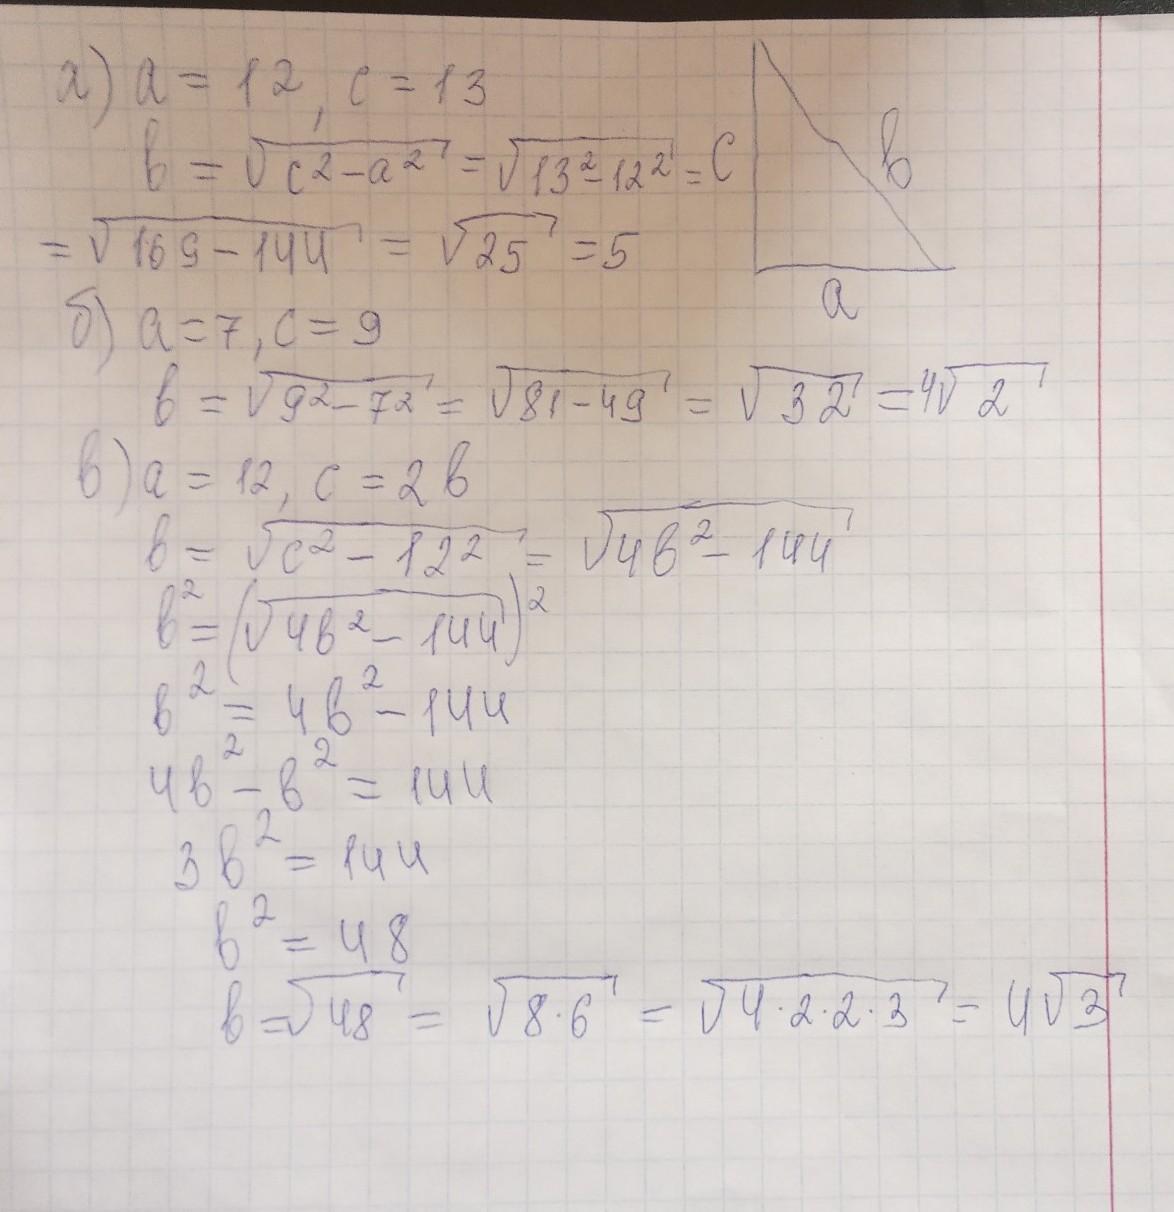 а) a = 12, c = 13
b = √(c² - a²) = √(13² - 12²) =
= √(169 - 144) = √25 = 5
c
b
a
б) a = 7, c = 9
b = √(9² - 7²) = √(81 - 49) = √32 = 4√2
в) a = 12, c = 2b
b = √(c² - 12²) = √(4b² - 144)
b² = (√(4b² - 144))²
b² = 4b² - 144
4b² - b² = 144
3b² = 144
b² = 48
b = √48 = √(8·6) = √(4·2·2·3) = 4√3